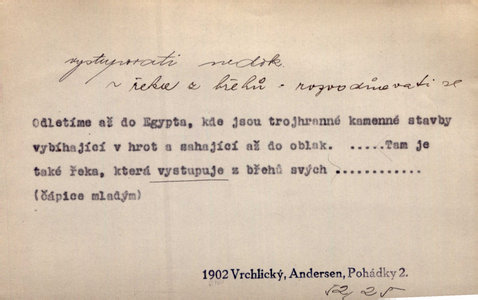 vystupovati nedok.
~ řeka z břehů - rozvodňovati se
Odletíme až do Egypta, kde jsou trojhranné kamenné stavby
vybíhající v hrot a sahající až do oblak. .....Tam je
také řeka, která vystupuje z břehů svých ............
(čápice mladým)
1902 Vrchlický, Andersen, Pohádky 2.
52, 25